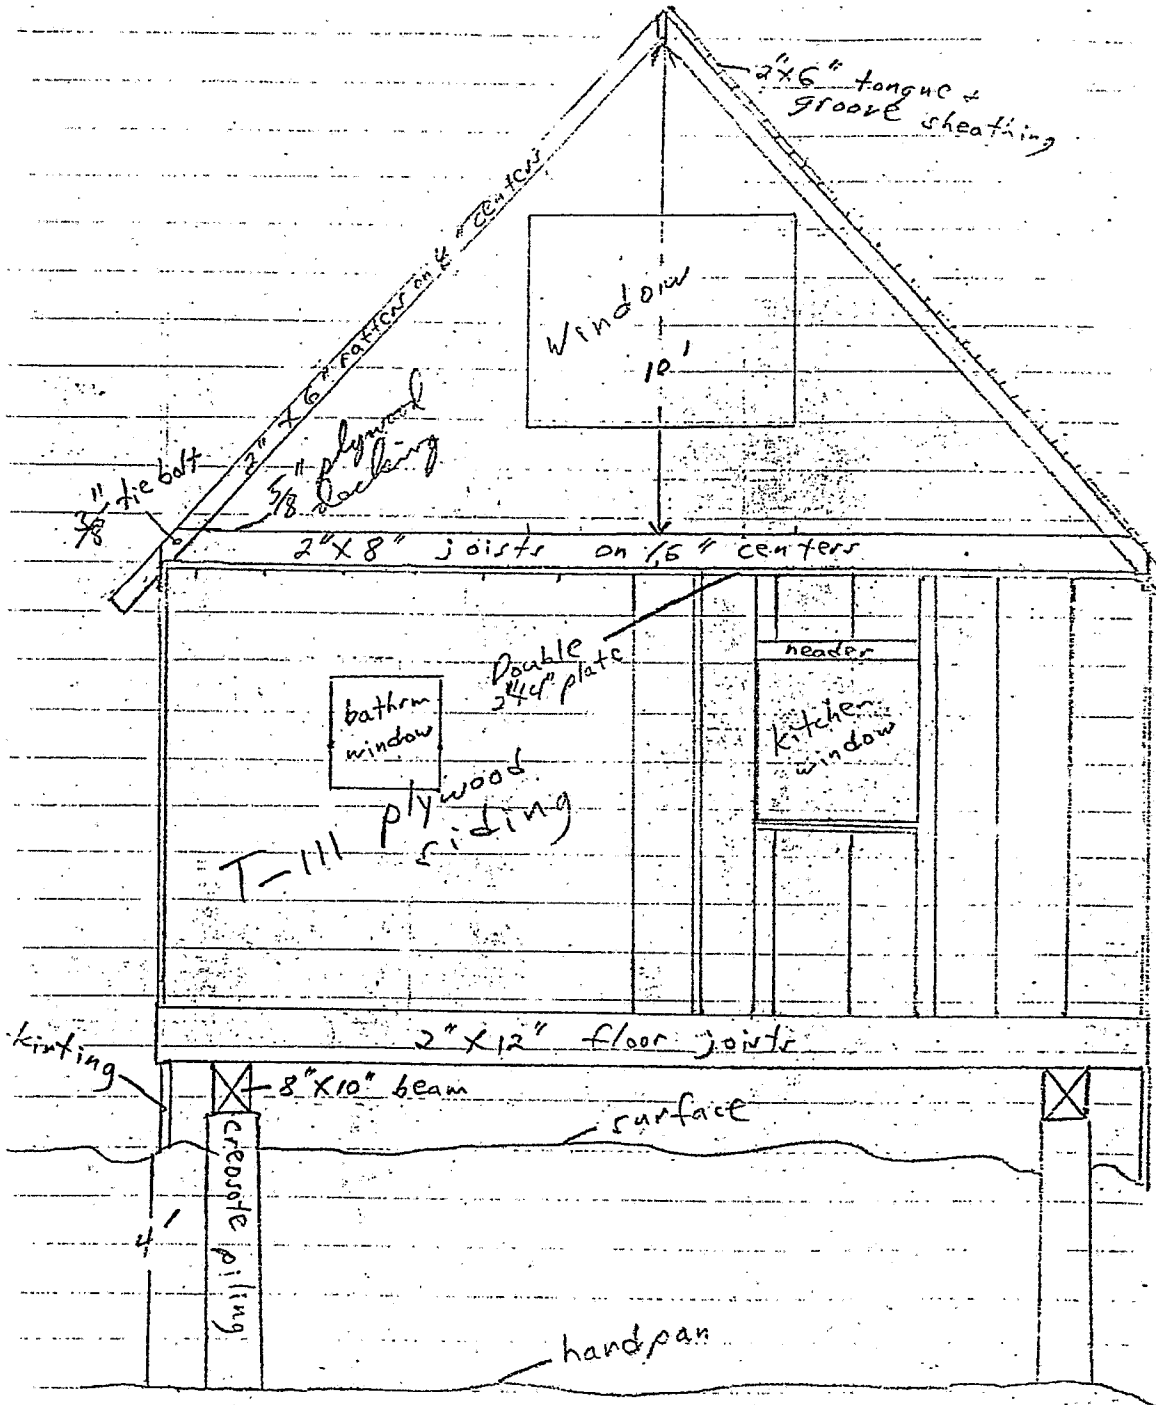 2"X6" tongue +
groove sheathing
2" X 6" rafters on " centers
Window
10'
3/8" tie bolt
5/8" plywood
decking
2"X8" joists on 16" centers
Double
2"X4" plate
header
bathrm
window
kitchen
window
T-111 plywood
siding
2"X12" floor joists
kirting
8"X10" beam
surface
creosote piling
4'
hardpan